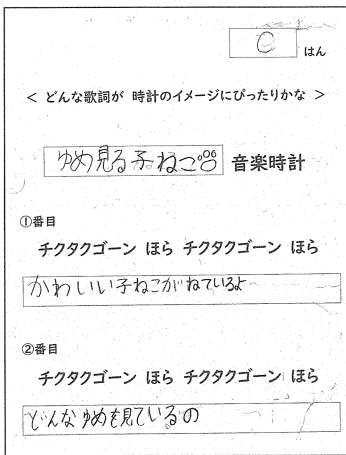 C はん
< どんな歌詞が 時計のイメージにぴったりかな >
ゆめ見る子ねこ 音楽時計
①番目
チクタクゴーン ほら チクタクゴーン ほら
かわいい子ねこがねているよ
②番目
チクタクゴーン ほら チクタクゴーン ほら
どんなゆめを見ているの